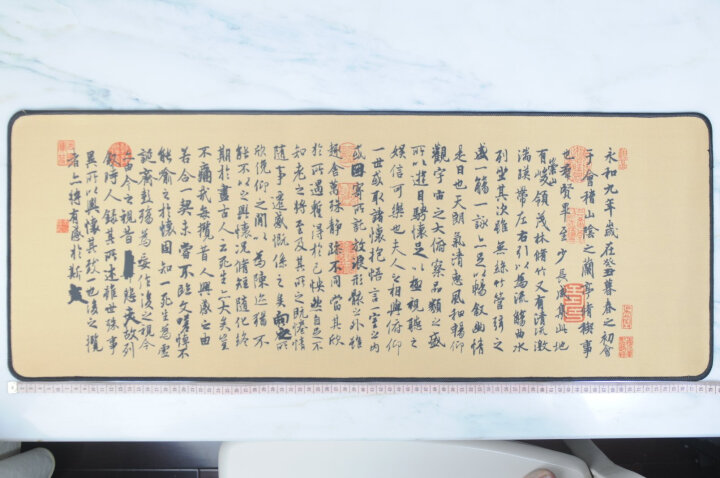 永和九年歲在癸丑暮春之初會
于會稽山陰之蘭亭脩稧事
也羣賢畢至少長咸集此地
有崇山峻領茂林脩竹又有清流激
湍暎帶左右引以為流觴曲水
列坐其次雖無絲竹管弦之
盛一觴一詠亦足以暢叙幽情
是日也天朗氣清惠風和暢仰
觀宇宙之大俯察品類之盛
所以遊目騁懷足以極視聽之
娛信可樂也夫人之相與俯仰
一世或取諸懷抱悟言一室之內
或因寄所託放浪形骸之外雖
趣舍萬殊靜躁不同當其欣
於所遇蹔得於己怏然自足不
知老之將至及其所之既惓情
隨事遷感慨係之矣向之所
欣俛仰之間以為陳迹猶不
能不以之興懷況脩短隨化終
期於盡古人云死生亦大矣豈
不痛哉每攬昔人興感之由
若合一契未嘗不臨文嗟悼不
能喻之於懷固知一死生為虛
誕齊彭殤為妄作後之視今
亦由今之視昔悲夫故列
叙時人錄其所述雖世殊事
異所以興懷其致一也後之攬
者亦將有感於斯文